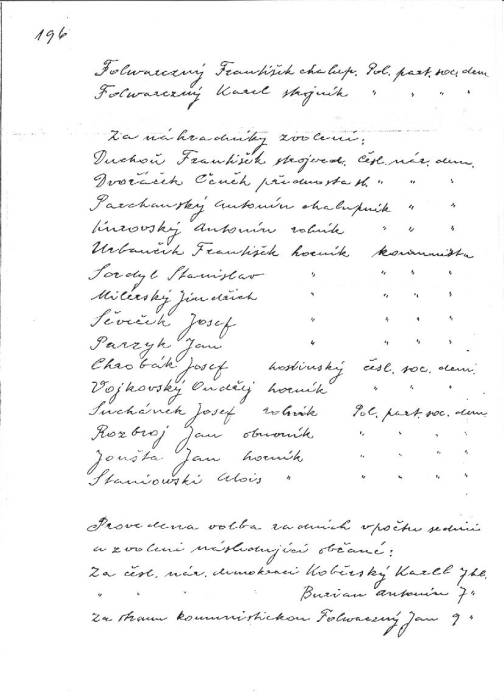 196
Folwarczný František chalup. Pol. part. soc. dem.
Folwarczný Karel strojník " " " "
Za náhradníky zvoleni:
Duchoň František strojved. čsl. nár. dem.
Dvořáček Čeněk přednosta st. " " "
Parchanský Antonín chalupník " " "
Kurovský Antonín rolník " " "
Urbančík František horník komunista
Sordyl Stanislav " " " "
Milerský Jindřich " " " "
Ševčík Josef " " " "
Parzyk Jan " " " "
Chrobák Josef hostinský čsl. soc. dem.
Vojkovský Ondřej horník " " "
Suchánek Josef rolník Pol. part. soc. dem.
Rozbroj Jan obuvník " " " "
Joušta Jan horník " " " "
Staniowski Alois " " " " "
Provedena volba radních v počtu sedmi
a zvoleni následující občané:
Za čsl. nár. demokracii Koběrský Karel 7 hl.
" " " Burian Antonín 7 "
Za stranu komunistickou Folwarczný Jan 9 "